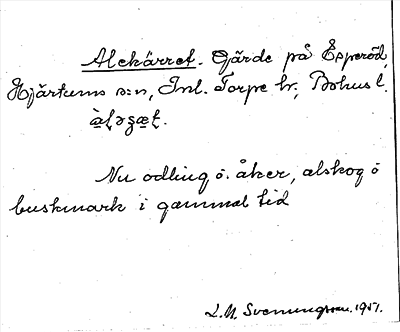 Alekärret. Gärde på Esperöd,
Hjärtums s:n, Inl. Torpe hr, Bohus l.
Nu odling o. åker, alskog o
buskmark i gammal tid
1951.